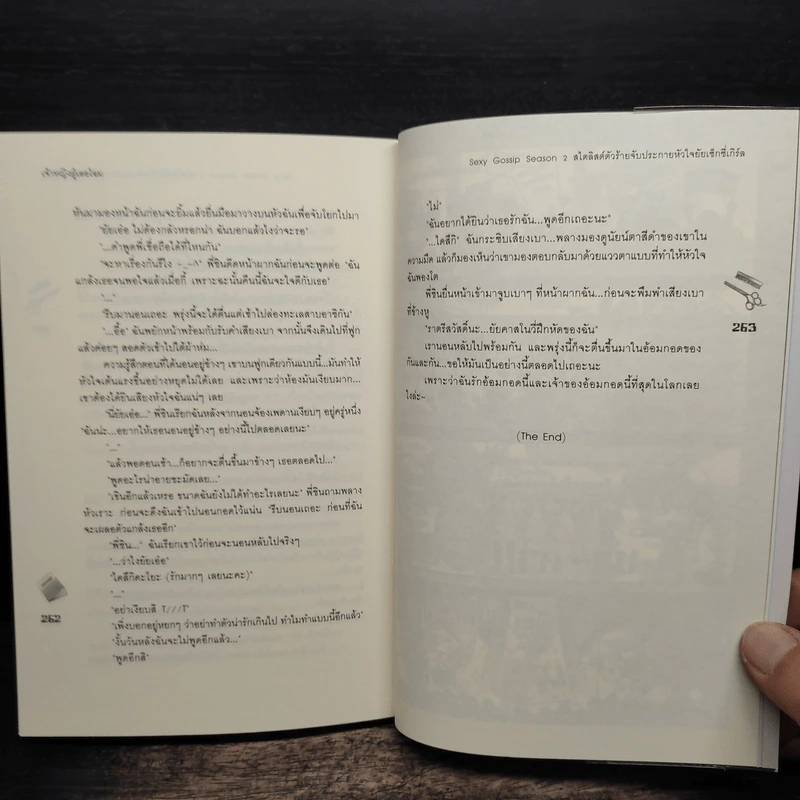 เจ้าหญิงผู้เลอโฉม
หันมามองหน้าฉันก่อนจะยิ้มแล้วยื่นมือมาวางบนหัวฉันเพื่อจับโยกไปมา
"ยัยเอ๋อ ไม่ต้องกลัวหรอกน่า ฉันบอกแล้วไงว่าจะรอ"
"...คำพูดพี่เชื่อถือได้ที่ไหนกัน"
"จะหาเรื่องกันรึไง -_-^" พี่ชินดีดหน้าผากฉันก่อนจะพูดต่อ "ฉัน
แกล้งเธอจนพอใจแล้วเมื่อกี้ เพราะฉะนั้นคืนนี้ฉันจะใจดีกับเธอ"
"..."
"รีบมานอนเถอะ พรุ่งนี้จะได้ตื่นแต่เช้าไปล่องทะเลสาบอาชิกัน"
"...อื้อ" ฉันพยักหน้าพร้อมกับรับคำเสียงเบา จากนั้นจึงเดินไปที่ฟูก
แล้วค่อยๆ สอดตัวเข้าไปใต้ผ้าห่ม...
ความรู้สึกตอนที่ได้นอนอยู่ข้างๆ เขาบนฟูกเดียวกันแบบนี้...มันทำให้
หัวใจเต้นแรงขึ้นอย่างหยุดไม่ได้เลย และเพราะว่าห้องมันเงียบมาก...
เขาต้องได้ยินเสียงหัวใจฉันแน่ๆ เลย
"นี่ยัยเอ๋อ..." พี่ชินเรียกฉันหลังจากนอนจ้องเพดานเงียบๆ อยู่ครู่หนึ่ง
"ฉันน่ะ...อยากให้เธอนอนอยู่ข้างๆ อย่างนี้ไปตลอดเลยนะ"
"..."
"แล้วพอตอนเช้า...ก็อยากจะตื่นขึ้นมาข้างๆ เธอตลอดไป..."
"พูดอะไรน่าอายชะมัดเลย..."
"เขินอีกแล้วเหรอ ขนาดฉันยังไม่ได้ทำอะไรเลยนะ" พี่ชินถามพลาง
หัวเราะ ก่อนจะดึงฉันเข้าไปนอนกอดไว้แน่น "รีบนอนเถอะ ก่อนที่ฉัน
จะเผลอตัวแกล้งเธออีก"
"พี่ชิน..." ฉันเรียกเขาไว้ก่อนจะนอนหลับไปจริงๆ
"...ว่าไงยัยเอ๋อ"
"ไดสึกิดะโยะ (รักมากๆ เลยนะคะ)"
"..."
"อย่าเงียบสิ T///T"
"เพิ่งบอกอยู่หยกๆ ว่าอย่าทำตัวน่ารักเกินไป ทำไมทำแบบนี้อีกแล้ว"
"งั้นวันหลังฉันจะไม่พูดอีกแล้ว..."
"พูดอีกสิ"
262
Sexy Gossip Season 2 สไตลิสต์ตัวร้ายจับประกายหัวใจยัยเซ็กซี่เกิร์ล
"ไม่"
"ฉันอยากได้ยินว่าเธอรักฉัน...พูดอีกเถอะนะ"
"...ไดสึกิ" ฉันกระซิบเสียงเบา...พลางมองดูนัยน์ตาสีดำของเขาใน
ความมืด แล้วก็มองเห็นว่าเขามองตอบกลับมาด้วยแววตาแบบที่ทำให้หัวใจ
ฉันพองโต
พี่ชินยื่นหน้าเข้ามาจูบเบาๆ ที่หน้าผากฉัน...ก่อนจะพึมพำเสียงเบา
ที่ข้างหู
"ราตรีสวัสดิ์นะ...ยัยคาสโนวี่ฝึกหัดของฉัน"
เรานอนหลับไปพร้อมกัน และพรุ่งนี้ก็จะตื่นขึ้นมาในอ้อมกอดของ
กันและกัน...ขอให้มันเป็นอย่างนี้ตลอดไปเถอะนะ
เพราะว่าฉันรักอ้อมกอดนี้และเจ้าของอ้อมกอดนี้ที่สุดในโลกเลย
ไงล่ะ~
(The End)
263